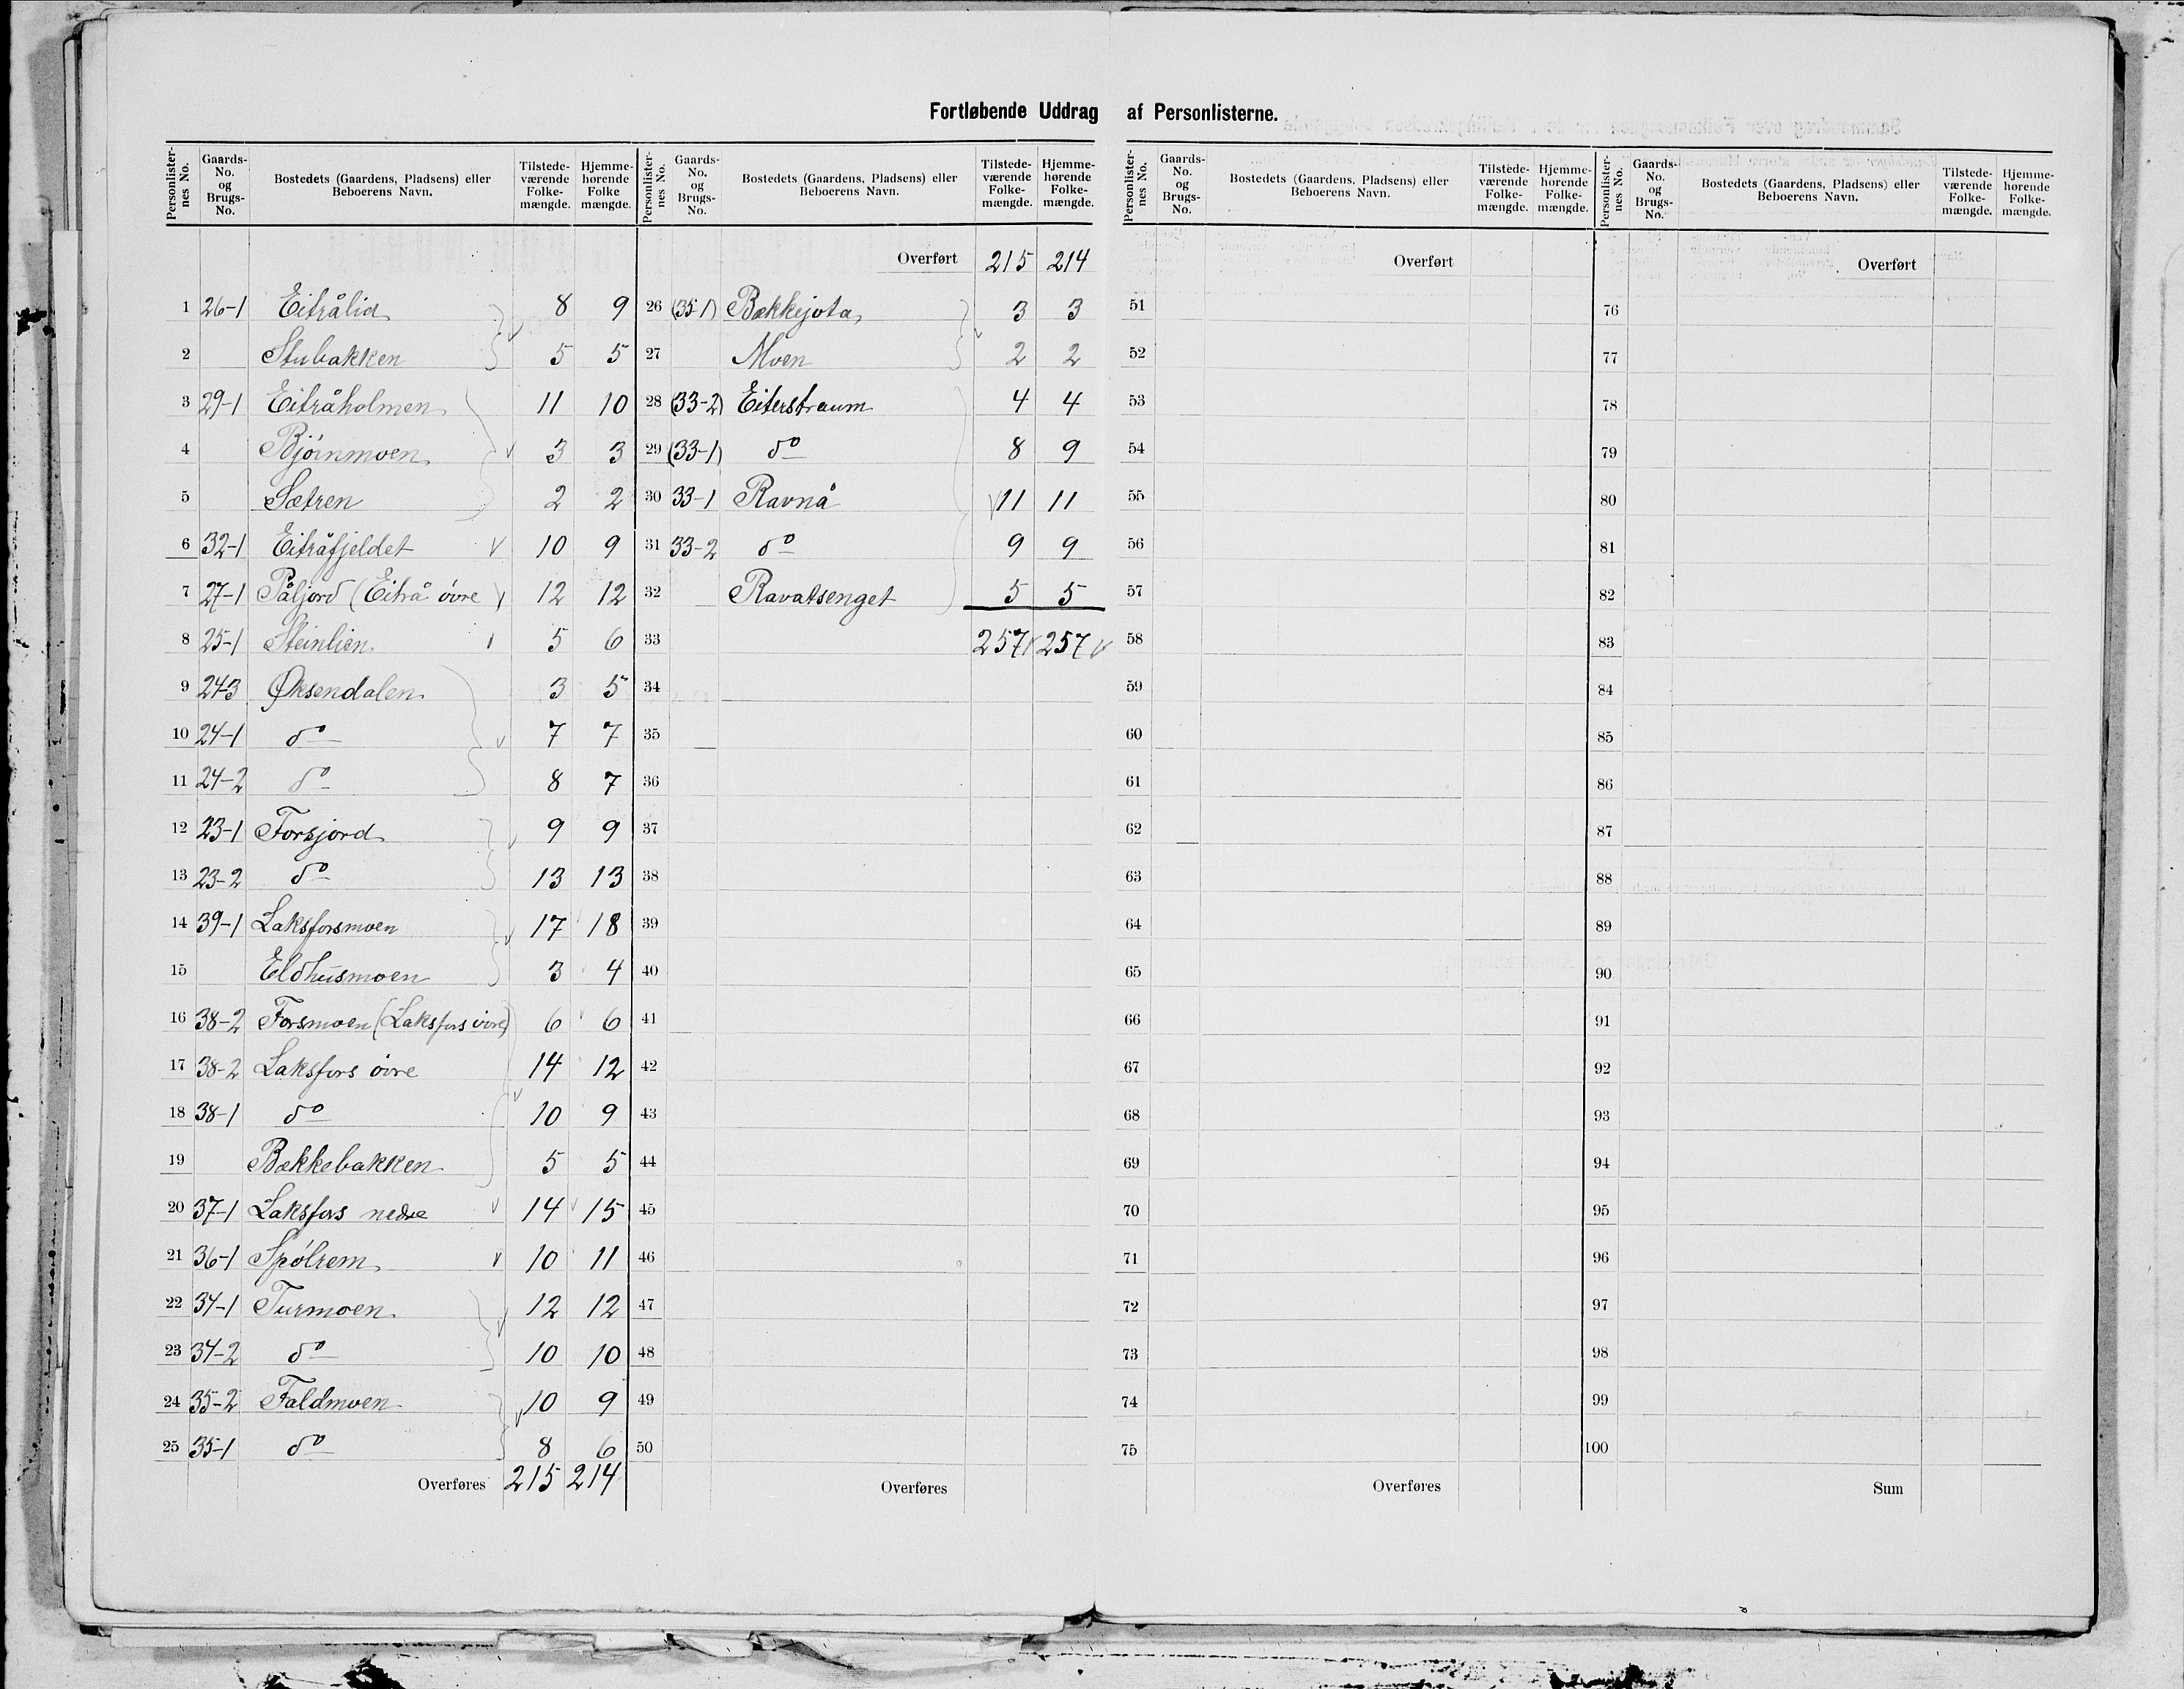 Fortløbende Uddrag af Personlisterne.
Personlisternes No. Gaards-No. og Brugs-No. Bostedets (Gaardens, Pladsens) eller Beboerens Navn. Tilstedeværende Folkemængde. Hjemmehørende Folkemængde.
1 26-1 Eitrålid 8 9
2 Stubakken 5 5
3 29-1 Eitråholmen 11 10
4 Bjørnmoen 3 3
5 Sætren 2 2
6 32-1 Eitråfjeldet 10 9
7 27-1 Påljord (Eitrå øvre) 12 12
8 25-1 Steinlien 5 6
9 24-3 Øksendalen 3 5
10 24-1 do 7 7
11 24-2 do 8 7
12 23-1 Forsjord 9 9
13 23-2 do 13 13
14 39-1 Laksforsmoen 17 18
15 Eldhusmoen 3 4
16 38-2 Forsmoen (Laksfors øvre) 6 6
17 38-2 Laksfors øvre 14 12
18 38-1 do 10 9
19 Bækkebakken 5 5
20 37-1 Laksfors nedre 14 15
21 36-1 Spølrem 10 11
22 34-1 Turmoen 12 12
23 34-2 do 10 10
24 35-2 Faldmoen 10 9
25 35-1 do 8 6
Overføres 215 214
Personlisternes No. Gaards-No. og Brugs-No. Bostedets (Gaardens, Pladsens) eller Beboerens Navn. Tilstedeværende Folkemængde. Hjemmehørende Folkemængde.
Overført 215 214
26 (35-1) Bækkejota 3 3
27 Moen 2 2
28 (33-2) Eiterstraum 4 4
29 (33-1) do 8 9
30 33-1 Ravnå 11 11
31 33-2 do 9 9
32 Ravatsenget 5 5
33 257 257
34
35
36
37
38
39
40
41
42
43
44
45
46
47
48
49
50
Overføres
Personlisternes No. Gaards-No. og Brugs-No. Bostedets (Gaardens, Pladsens) eller Beboerens Navn. Tilstedeværende Folkemængde. Hjemmehørende Folkemængde.
Overført
51
52
53
54
55
56
57
58
59
60
61
62
63
64
65
66
67
68
69
70
71
72
73
74
75
Overføres
Personlisternes No. Gaards-No. og Brugs-No. Bostedets (Gaardens, Pladsens) eller Beboerens Navn. Tilstedeværende Folkemængde. Hjemmehørende Folkemængde.
Overført
76
77
78
79
80
81
82
83
84
85
86
87
88
89
90
91
92
93
94
95
96
97
98
99
100
Sum